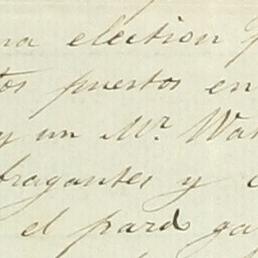 na election
tos puestos en
y un Mr. Wa
fragantes y
el pard ga